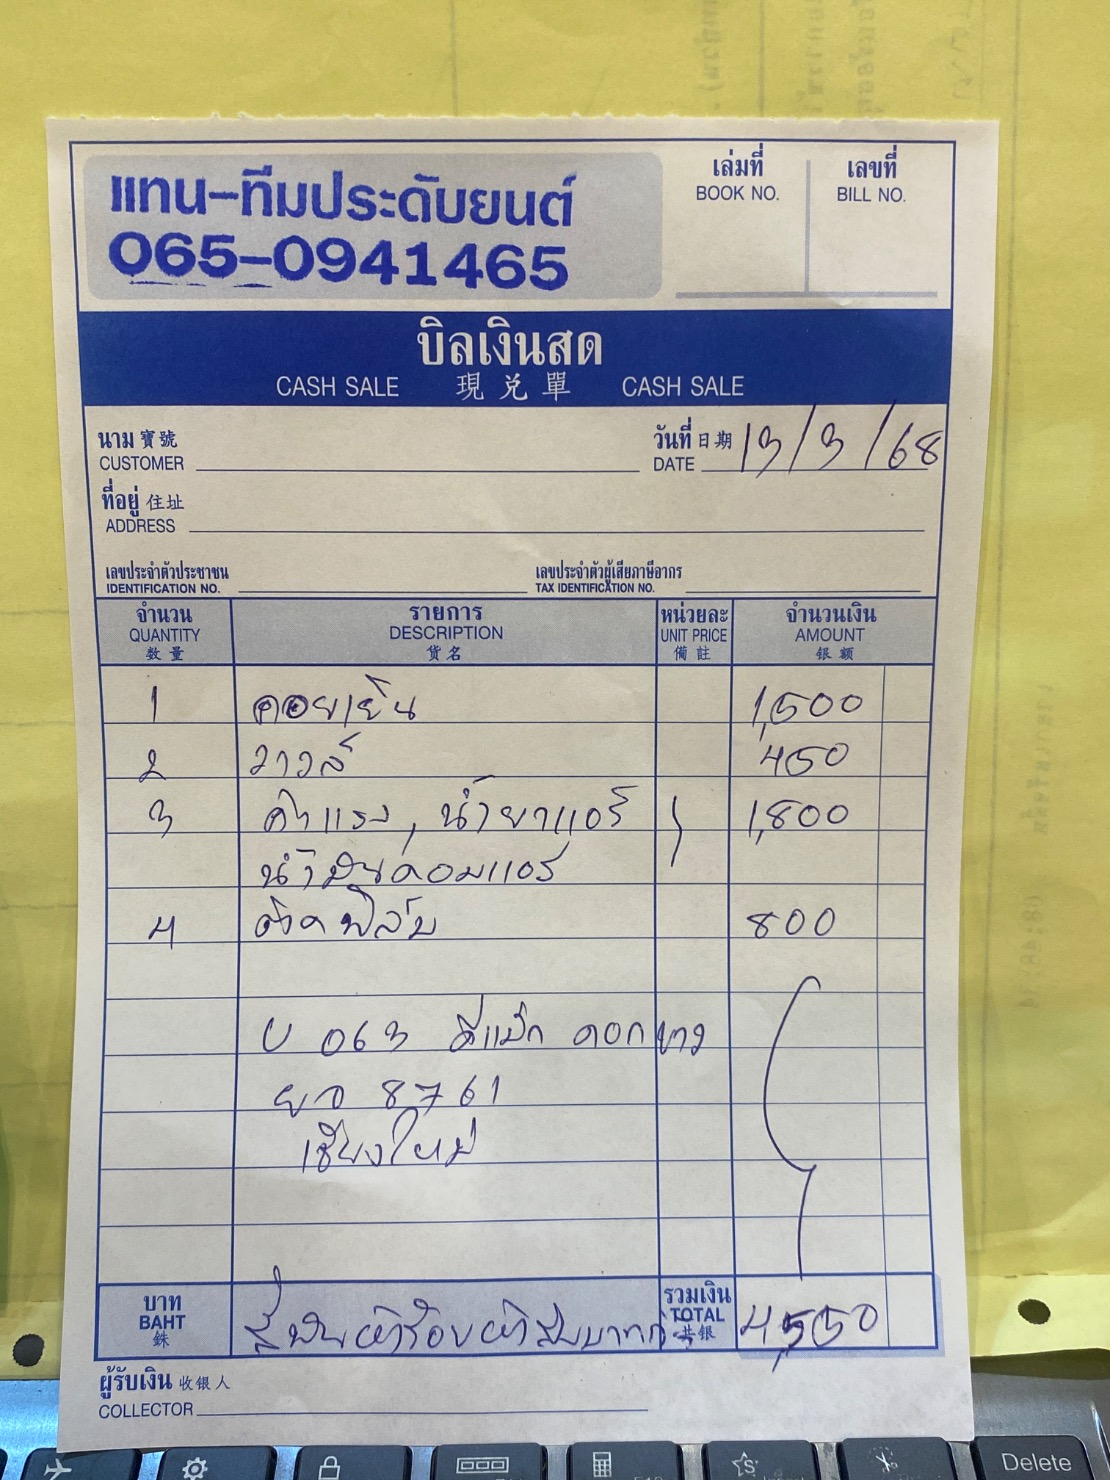 แทน-ทีมประดับยนต์
065-0941465
เล่มที่
BOOK NO.
เลขที่
BILL NO.
บิลเงินสด
CASH SALE 現兌單 CASH SALE
นาม 寶號
CUSTOMER
วันที่ 日期
DATE 13/3/68
ที่อยู่ 住址
ADDRESS
เลขประจำตัวประชาชน
IDENTIFICATION NO.
เลขประจำตัวผู้เสียภาษีอากร
TAX IDENTIFICATION NO.
จำนวน
QUANTITY
数量
รายการ
DESCRIPTION
貨名
หน่วยละ
UNIT PRICE
備註
จำนวนเงิน
AMOUNT
银额
1 คอยเย็น 1,500
2 วาวล์ 450
3 ค่าแรง, น้ำยาแอร์ 1,800
น้ำมันคอมแอร์
4 ติดฟิล์ม 800
U 063 ดีแม็ก ดอกขาว
ยอ 8761
เชียงใหม่
บาท
BAHT
銖
สี่พันห้าร้อยห้าสิบบาท
รวมเงิน
TOTAL
共银
4,550
ผู้รับเงิน 收银人
COLLECTOR
Delete